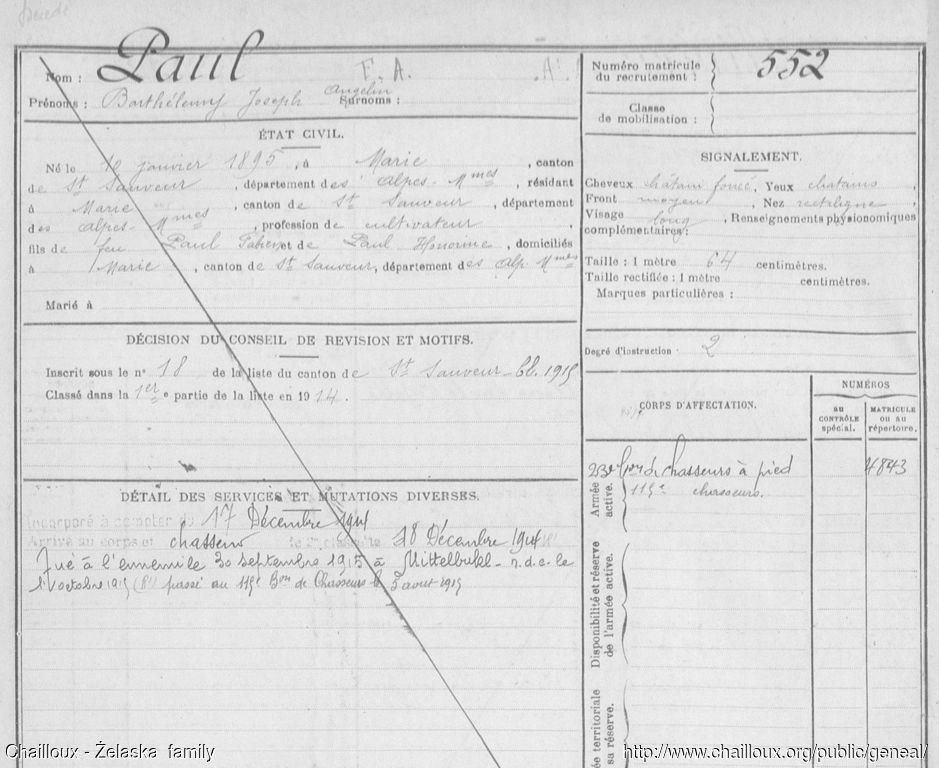 Décédé
Nom : Paul F. A. A.
Prénoms : Barthélemy Joseph Angelin Surnoms :
ÉTAT CIVIL.
Né le janvier 1895, à Marie, canton
de St Sauveur, département des Alpes-Mmes, résidant
à Marie, canton de St Sauveur, département
des Alpes-Mmes, profession de cultivateur,
fils de feu Paul Fabien et de Paul Honorine, domiciliés
à Marie, canton de St Sauveur, département des Alp. Mmes
Marié à
DÉCISION DU CONSEIL DE REVISION ET MOTIFS.
Inscrit sous le no 18 de la liste du canton de St Sauveur - Cl. 1915
Classé dans la 1ere partie de la liste en 1914.
DÉTAIL DES SERVICES ET MUTATIONS DIVERSES.
Incorporé à compter du 17 Décembre 1914
Arrivé au corps et chasseur de 2e classe le 18 Décembre 1914
Tué à l'ennemi le 30 septembre 1915 à Mittelbuhl - n.d.c. le
octobre 1915 passé au 115e Bon de Chasseurs le 5 aout 1915
Numéro matricule
du recrutement : 552
Classe
de mobilisation :
SIGNALEMENT.
Cheveux châtain foncé, Yeux chatains,
Front moyen, Nez rectiligne
Visage long, Renseignements physionomiques
complémentaires :
Taille : 1 mètre 64 centimètres.
Taille rectifiée : 1 mètre centimètres.
Marques particulières :
Degré d'instruction : 2
CORPS D'AFFECTATION.
NUMÉROS
AU CONTRÔLE spécial.
MATRICULE ou au répertoire.
Armée active.
23e Bon de chasseurs à pied 4843
115e chasseurs.
Disponibilité et réserve de l'armée active.
ée territoriale
sa réserve.
Chailloux - Żelaska family
http://www.chailloux.org/public/geneal/